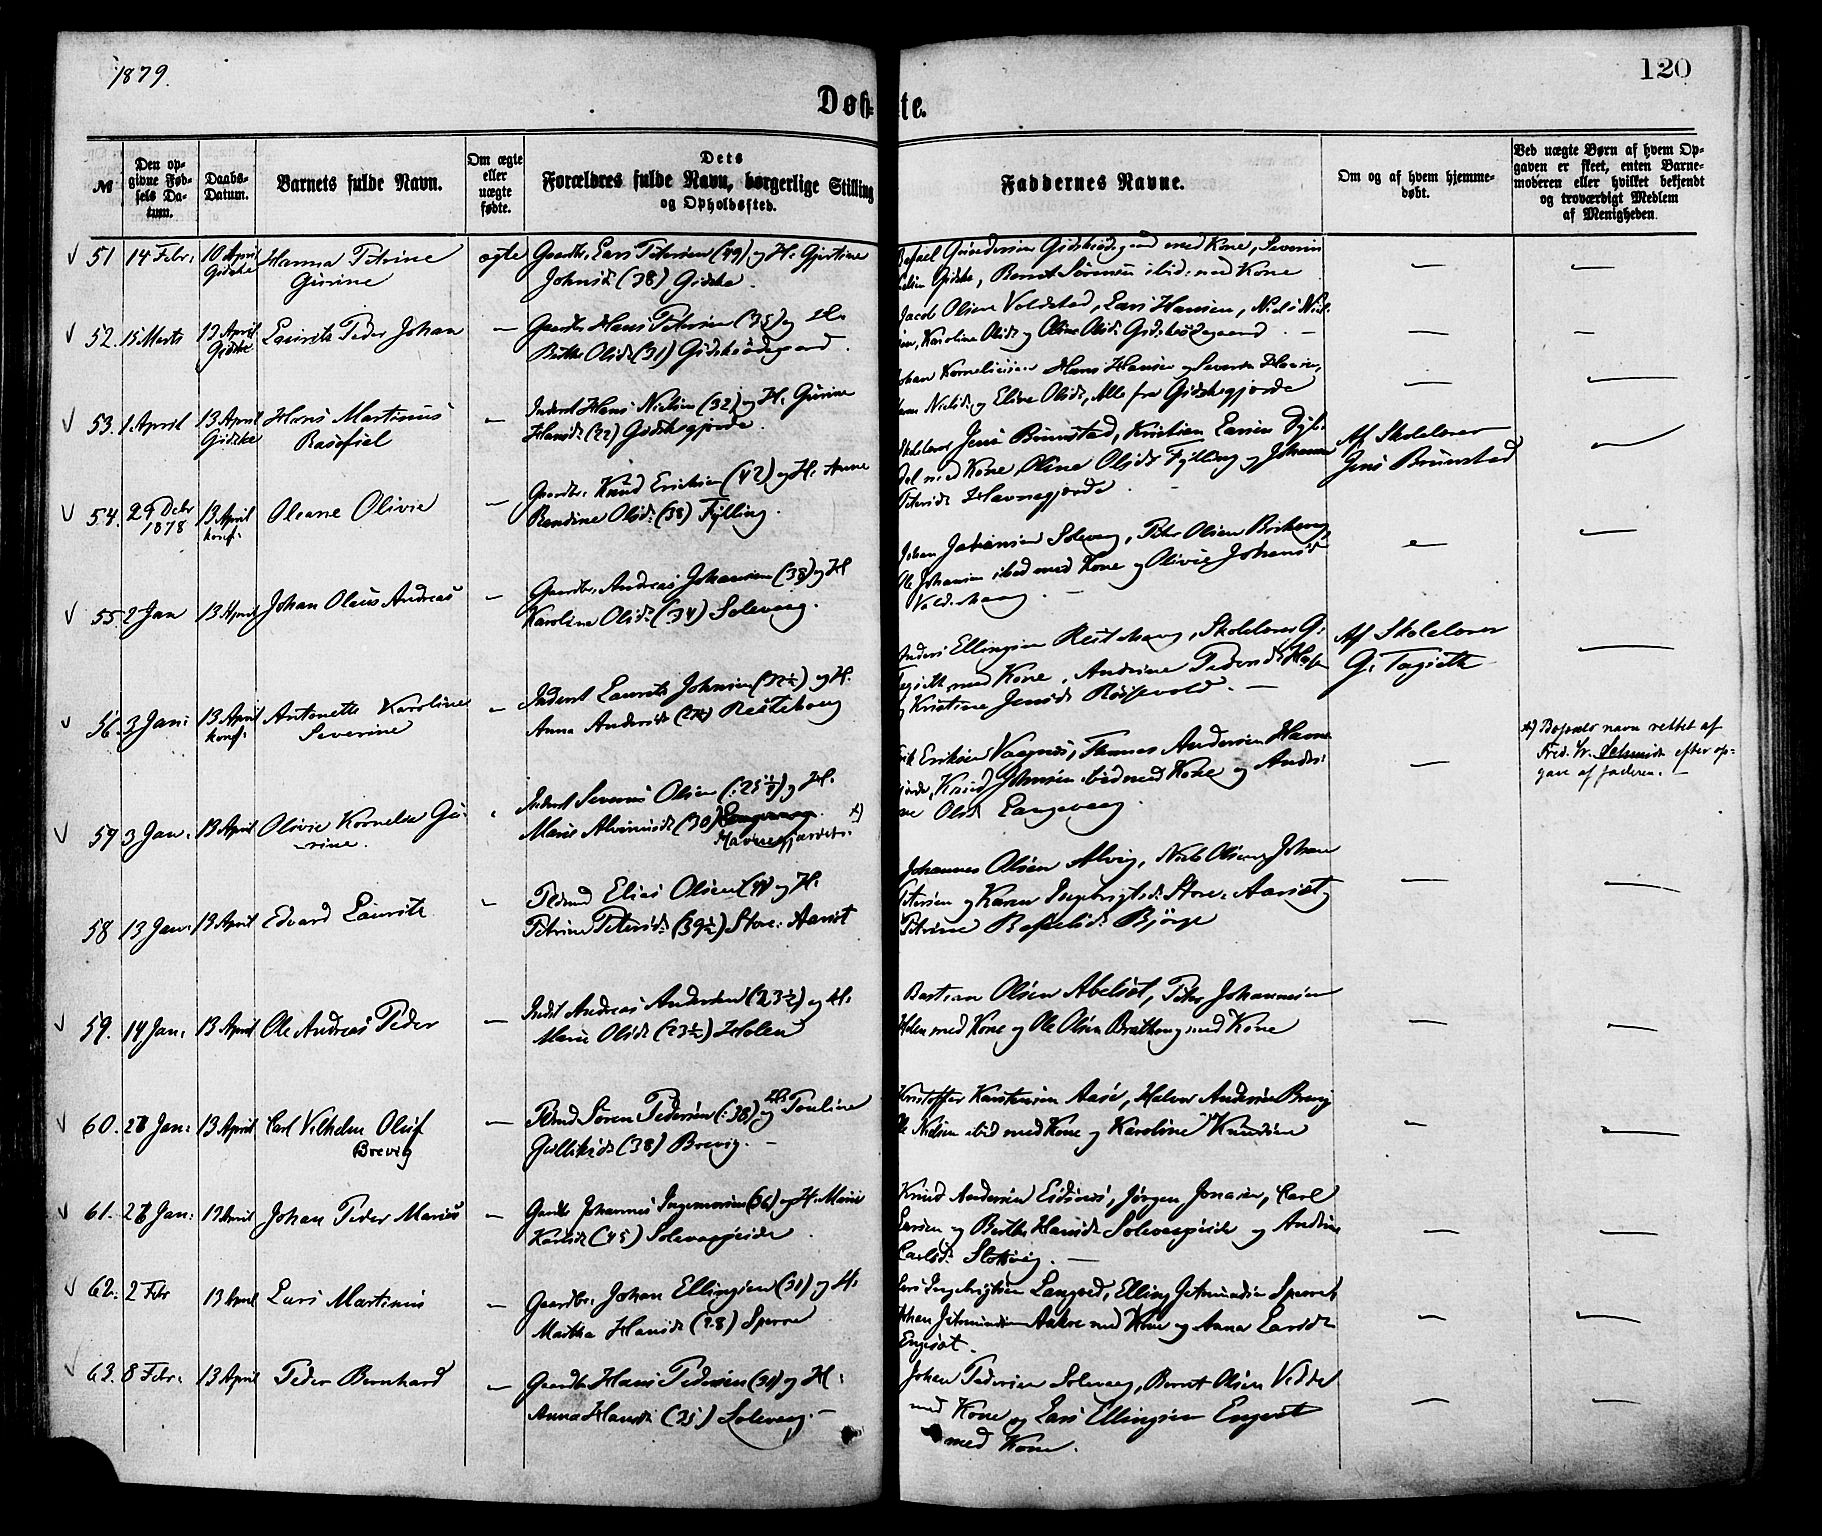 1879.
120
Døbte.
№
Den opgivne Fødsels Datum.
Daabs-Datum.
Barnets fulde Navn.
Om ægte eller uægte fødte.
Dets Forældres fulde Navn, borgerlige Stilling og Opholdssted.
Faddernes Navne.
Om og af hvem hjemmedøbt.
Ved uægte Børn af hvem Opgaven er skeet, enten Barnemoderen eller hvilket bekjendt og troværdigt Medlem af Menigheden.
51 14 Febr: 10 April Gidske Hanna Petrine Gurine ægte
Gaardbr. Lars Petersen (49) og H. Gjertine
Johnsd: (38) Gidske.
Gundersen Gidskeødegaard med Kone, Severin
Gidske, Bernt Sørensen ibid: med Kone
52. 15 Marts 13 April Gidske Laurits Peder Johan —
Gaardbr. Hans Petersen (35) og H.
Berthe Olsd: (31) Gidskeødegaard.
Jacob Olsen Voldstad, Lars Hansen, Niels Niel-
sen, Karoline Olsd: og Oline Olsd: Gidskeødegaard. —
53. 1. April 13 April Gidske Hans Martinus Basefiel —
Inderst Hans Nielsen (32) og H. Gurine
Hansd: (22) Gidskegjerde.
Johan Korneliussen Hans Hansen og Severin Hansen,
Nielsd: og Eline Olsd: Alle fra Gidskegjerde
54. 29 Debr 1878 13 April konf: Oleane Olivie —
Gaardbr. Knud Eriksen (42) og H. Anne
Bendine Olsd: (38) Fylling.
Skolelærer Jens Brunstad, Kristian Larsen
med Kone, Oline Olsd: Fylling og Johanne
Petersd: Havnegjerde
Af Skolelærer
Jens Brunstad
55. 2 Jan 13 April Johan Olaus Andreas —
Gaardbr. Andreas Johansen (38) og H
Karoline Olsd: (34) Solevaag.
Johan Solevaag, Peter Olsen
Ole Johansen ibid med Kone og Olivie Johansd:
56. 3 Jan: 13 April konf: Antonette Karoline Severine —
Inderst Laurits Johnsen (32½) og H.
Anna Andersd: (27½) Restehaug
Anders Ellingsen Restehaug, Skolelærer G.
med Kone, Andrine Pedersd:
og Kristine Jensd: Røssevold. —
Af Skolelærer
G.
59 3 Jan: 13 April Olivie Kornelie Gu-
rine.
Inderst Severin Olsen (25) og H.
Marie (30) Langevaag. *)
Havnegjærdet.
Erik Eriksen Vaagnes, Thomas Andersen Havne-
gjerde, Knud Johnsen ibid med Kone og Andri-
ne Olsd: Langevaag.
*) Bopæls navn rettet af
Fred. W. Schmidt efter op-
gave af faderen. —
58 13 Jan: 13 April Edvard Laurits —
Elias Olsen (41) og H.
Petrine Petersd: (39½) Store-Aarset
Johannes Olsen Alvig, Niels Olsen og Johan
Petersen og Karen Ingebrigtsd: Store-Aarset og
Petrine Bjørge
59. 14 Jan: 13 April Ole Andreas Peder —
Inderst Andreas Andersen (23½) og H.
Marie Olsd: (23½) Holen
Bastian Olsen Abelset, Peter Johannesen
Holen med Kone og Ole Olsen Brathaug med Kone
60. 27 Jan: 13 April Carl Vilhelm Oluf
Brevig
Søren Pedersen (38) og H. Pouline
(38) Brevig. —
Kristoffer Karstensen Aase, Halvor Andersen Brevig
Ole Nielsen ibid med Kone og Karoline Knudsen
61. 27 Jan: 13 April Johan Peder Marius —
Gaardbr Johannes Ingemarsen (36) og H. Marie
Karlsd: (45) Solevaagseide.
Knud Andersen Eidsnes, Jørgen Jonasen, Carl
Larsen og Berthe Hansd: Solevaagseide og Andrine
Carlsd: Slotsvig. —
62. 2 Febr 13 April Lars Martinus —
Gaardbr. Johan Ellingsen (31) og H.
Martha Hansd: (28) Sperre
Lars Ingebrigtsen Langset, Elling Jetmundsen Sperre,
Johan Jetmundsen Aakre med Kone og Anna Larsd:
Engeset.
63. 8 Febr. 13 April Peder Bernhard —
Gaardbr Hans Pedersen (31) og H.
Anna Hansd: (25) Solevaag. —
Johan Pedersen Solevaag, Bernt Olsen Veddel
med Kone og Lars Ellingsen Engeset
med Kone.